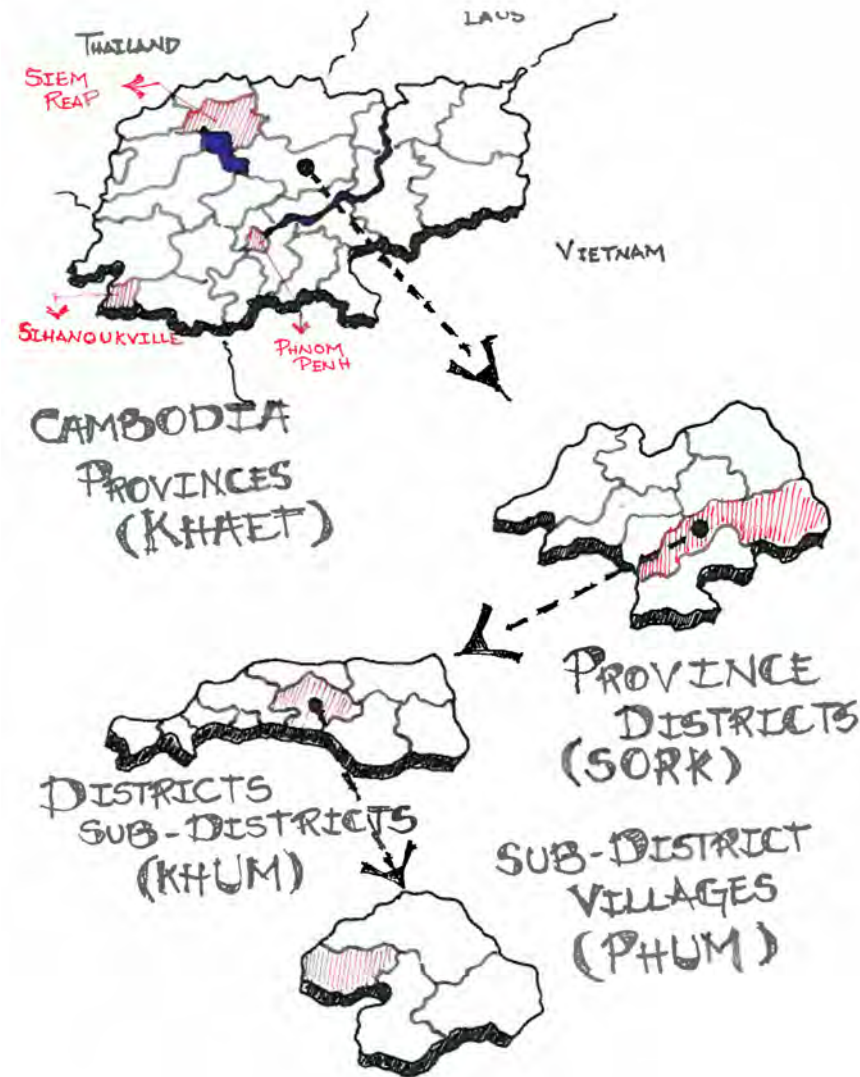 LAOS
THAILAND
SIEM
REAP
VIETNAM
SIHANOUKVILLE
PHNOM
PENH
CAMBODIA
PROVINCES
(KHAET)
PROVINCE
DISTRICTS
(SORK)
DISTRICTS
SUB-DISTRICTS
(KHUM)
SUB-DISTRICT
VILLAGES
(PHUM)